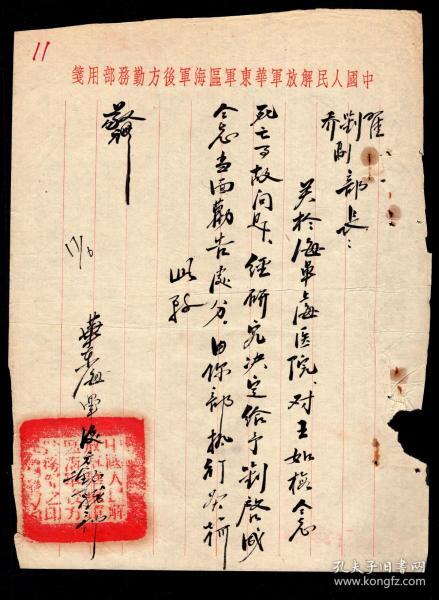 11
中國人民解放軍華東軍區海軍後方勤務部用箋
崔
劉
喬副部長:
关於海軍上海医院对王如仝志
死亡事故问题,经研究决定给予劉啓诚
仝志当面勸告處分,由你部执行為荷
此致
敬礼
華东海軍後方勤務部
17/6